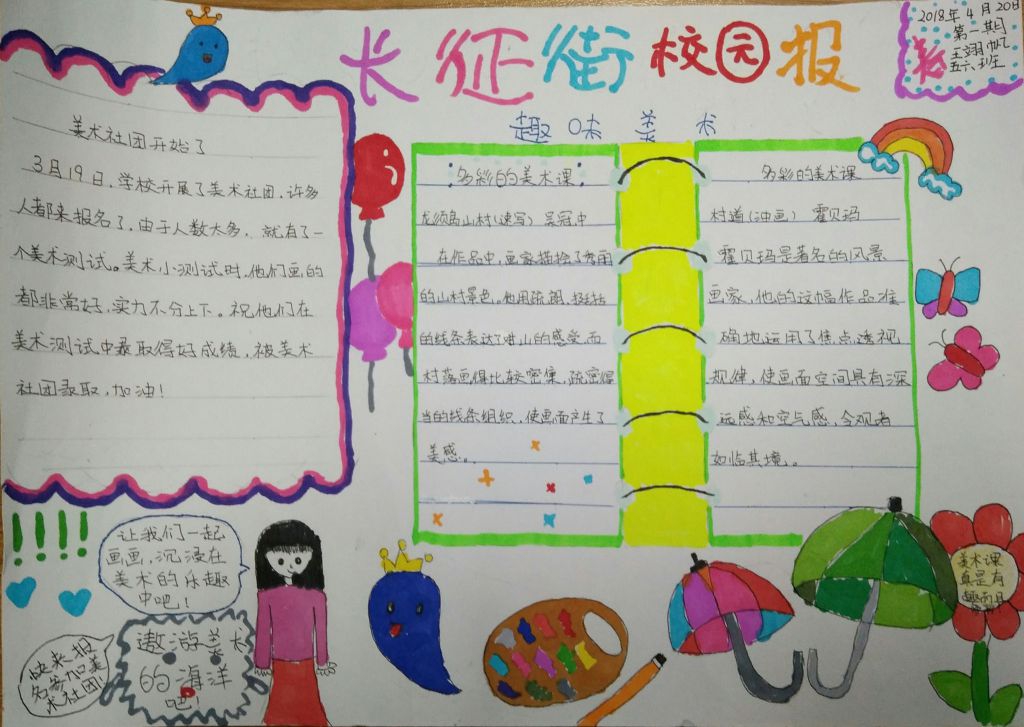 长征街校园报
2018年4月20日
第一期
五六班
美术社团开始了
3月19日,学校开展了美术社团,许多
人都来报名了,由于人数太多,就有了一
个美术测试。美术小测试时,他们画的
都非常好,实力不分上下。祝他们在
美术测试中录取得好成绩,被美术
社团录取,加油!
趣味美术
多彩的美术课
龙须岛山村(速写) 吴冠中
在作品中,画家描绘了秀丽
的山村景色。他用疏朗、
的线条表达了对山的感受,而
村落画得比较密集,疏密得
当的线条组织,使画面产生了
美感。
多彩的美术课
村道(油画) 霍贝玛
霍贝玛是著名的风景
画家,他的这幅作品准
确地运用了焦点透视
规律,使画面空间具有深
远感和空气感,令观者
如临其境。
让我们一起
画画,沉浸在
美术的乐趣
中吧!
遨游美术
的海洋
吧!
快来报
名参加美
术社团!
美术课
真是有
趣而且